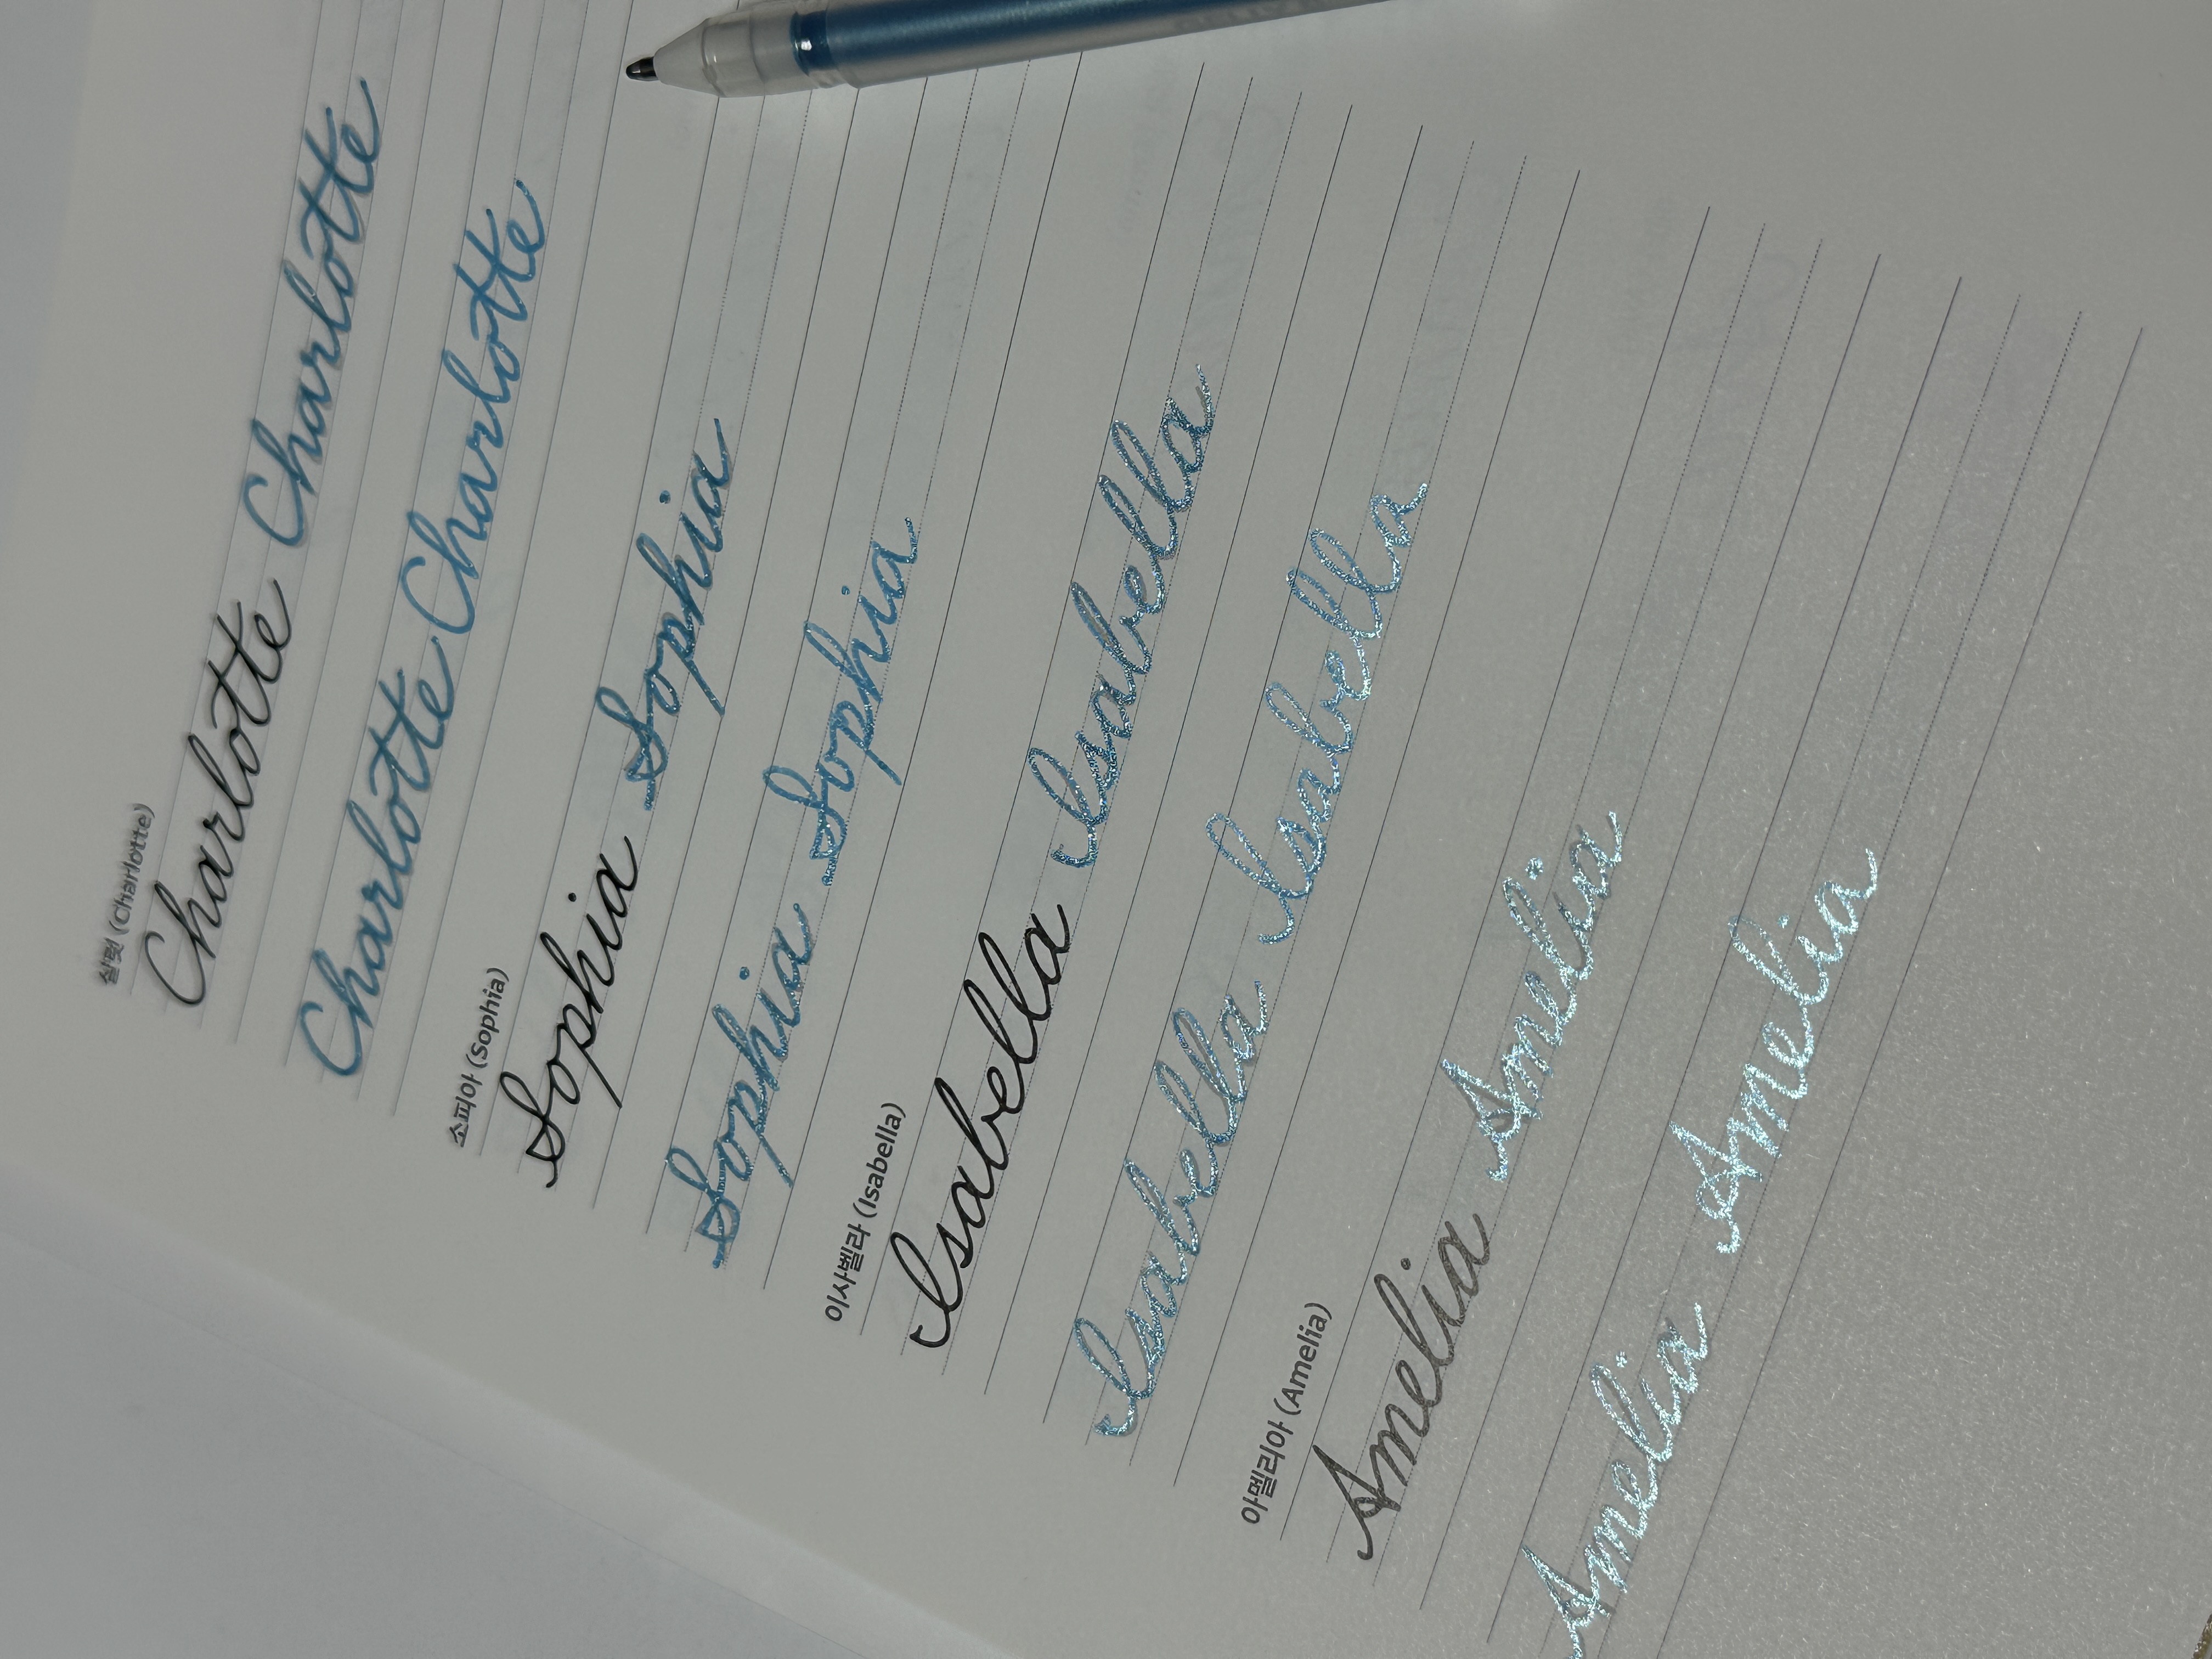 샬럿 (Charlotte)
Charlotte Charlotte
Charlotte Charlotte
소피아 (Sophia)
Sophia Sophia
Sophia Sophia
이사벨라 (Isabella)
Isabella Isabella
Isabella Isabella
아멜리아 (Amelia)
Amelia Amelia
Amelia Amelia